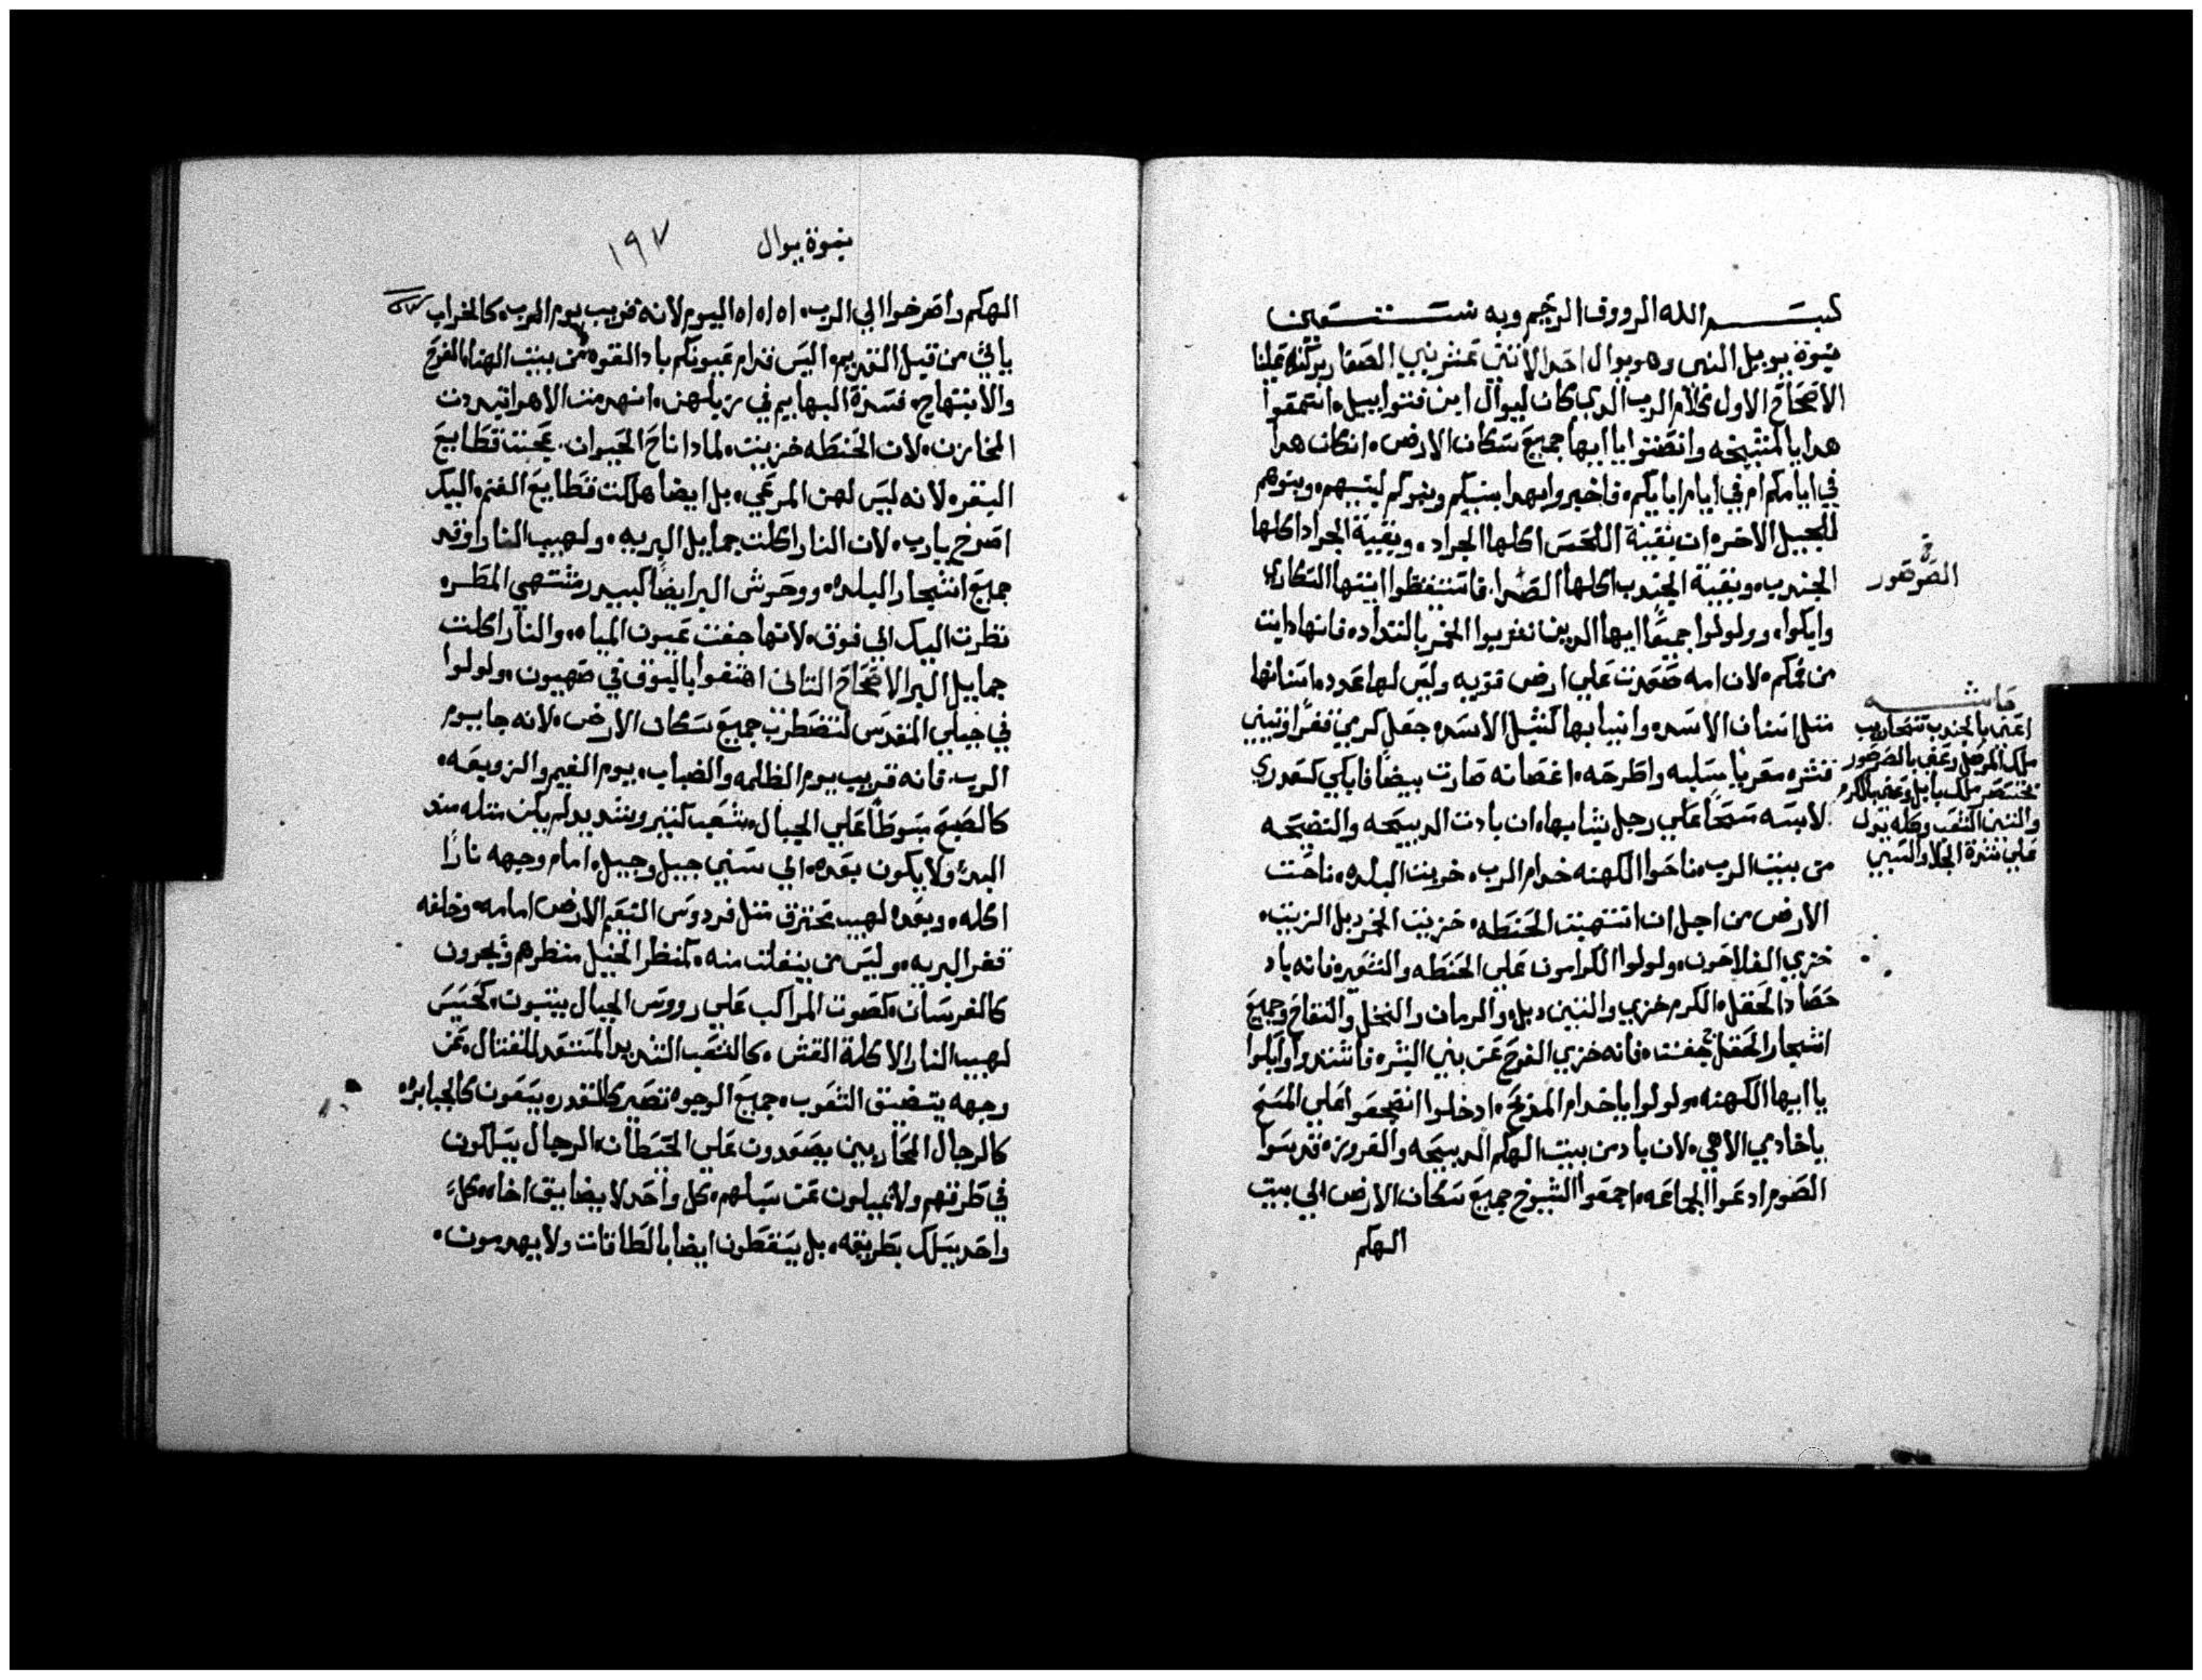 بسم الله الرووف الرحيم وبه نستعين
نبوة يوييل النبي وهو يوال احد الاثني عشر نبي الصغار بركته علينا
الاصحاح الاول كلام الرب الدي كان ليوال ابن فتواييل، اسمعوا
هدا يا المشيخه وانصتوا يا ايها جميع سكان الارض، ان كان هدا
في ايامكم ام في ايام ابايكم، فاخبروا بهدا بنيكم وبنوكم لبنيهم، وبنوهم
للجيل الاخر، ان بقية اللحس اكلها الجراد، وبقية الجراد اكلها
الجندب، وبقية الجندب اكلها الصدا. فاستيقظوا ايتها السكاري
وابكوا، وولولوا جميعًا ايها الدين تشربوا الخمر بالتداد، فانها دابت
من فمكم، لان امه صعدت علي ارض قويه وليس لها عدد، اسنانها
متل اسنان الاسد، وانيابها كمثل الاسد، جعل كرمي قفرًا وتيني
قشره معريًا سلبه واطرحه، اغصانه صارت بيضًا، فابكي كعدري
لابسه مسحًا علي رجل شبابها، ان بادت الدبيحه والنضيحه
من بيت الرب، ناحوا الكهنه خدام الرب، خربت البلده، ناحت
الارض من اجل ان انتهبت الحنطه، خزيت الخمر دبل الزيت،
خزي الفلاحون، ولولوا الكرامون علي الحنطه والشعير، فانه باد
حصاد الحقل، الكرم خزي والتين دبل، والرمان والنخل والتفاح وجميع
اشجار الحقل جفت، فانه خزي الفرح عن بني البشر، فاشتدوا وابكوا
يا ايها الكهنه، ولولوا يا خدام المدبح، ادخلوا انضجعوا علي المسح
يا خادمي الاهي، لان باد من بيت الهكم الدبيحه والقروره، قدسوا
الصوم ادعوا الجماعه، اجمعوا الشيوخ جميع سكان الارض الي بيت
الهكم
ق
الصرصور
حاشيه
اعني بالجندب سنحاريب
ملك الموصل وعني بالصرصور
بختنصر ملك بابل وعني بالكرم
والتين الشعب وكله يدل
علي شدة الجلا والسبي
نبوة يوال ١٩٧
الهكم واصرخوا الي الرب، اه اه اه اليوم لانه قريب يوم الرب، كالخراب
ياتي من قبل القديم، اليس قدام عيونكم باد القوه من بيت الهنا، الفرح
والابتهاج، فسدة البهايم في زبلهن، انهدمت الاهرا تبددت
المخازن، لان الحنطه خزيت، لمادا ناح الحيوان. عجت قطايع
البقر، لانه ليس لهن المرعي، بل ايضا هلكت قطايع الغنم، اليك
اصرخ يارب، لان النار اكلت جمايل البريه، ولهيب النار اوقد
جميع اشجار البلده، ووحوش البر ايضًا كبيدر مشتهي المطر
نظرت اليك الي فوق، لانها جفت عيون المياه، والنار اكلت
جمايل البر الاصحاح التاني اهتفوا بالبوق في صهيون، ولولوا
في جبلي المقدس لتضطرب جميع سكان الارض، لانه جا يوم
الرب، فانه قريب يوم الظلمه والضباب، يوم الغيم والزوبعه،
كالصبح مبسوطًا علي الجبال، شعب كثير وشديد لم يكن متله مند
البدء ولا يكون بعده، الي سني جيل وجيل، امام وجهه نارًا
اكله، وبعده لهيب تحترق متل فردوس النعيم الارض امامه، وخلفه
قفر البريه، وليس من ينفلت منه، كمنظر الخيل منظرهم ويجرون
كالفرسان، كصوت المراكب علي رووس الجبال يثبون، كحسيس
لهيب النار الاكلة القش، كالشعب الشديد المستعد للقتال، عن
وجهه يتضيق الشعوب، جميع الوجوه تصير كالقدر، يسعون كالجبابره
كالرجال المحاربين يصعدون علي الحيطان، الرجال يسلكون
في طرقهم ولا يميلون عن سبلهم، كل واحد لا يضايق اخاه، كل
واحد يسلك بطريقه، بل يسقطون ايضا بالطاقات ولا يهدمون،